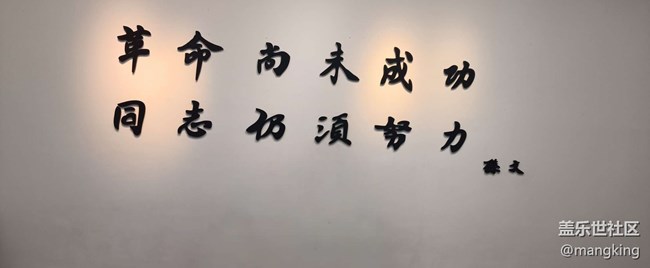 革命尚未成功
同志仍須努力
孫文
盖乐世社区
@mangking